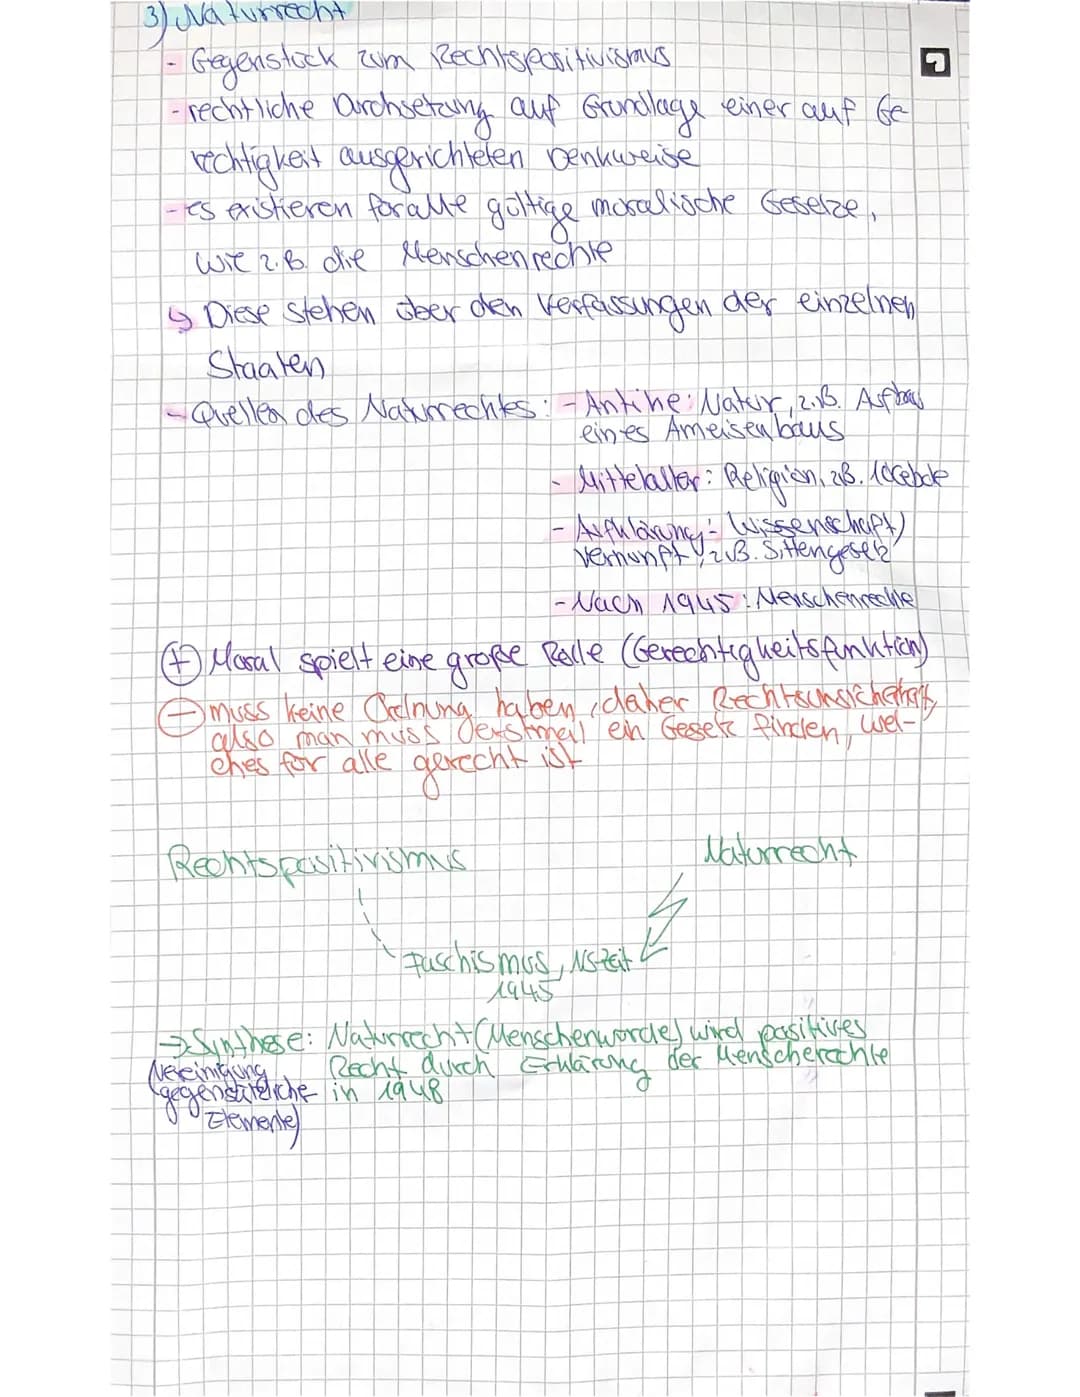 3) Naturrecht
- Gegenstück zum Rechtspositivismus
- rechtliche Durchsetzung auf Grundlage einer auf Ge-
rechtigkeit ausgerichteten Denkweise
- es existieren für alle gültige moralische Gesetze,
wie z.B. die Menschenrechte
↳ Diese stehen über den Verfassungen der einzelnen
Staaten
- Quellen des Naturrechtes: - Antike: Natur, z.B. Aufbau
eines Ameisenbaus
- Mittelalter: Religion, z.B. 10 Gebote
- Aufklärung: Wissenschaft/
Vernunft, z.B. Sittengesetz
- Nach 1945: Menschenrechte
⊕ Moral spielt eine große Rolle (Gerechtigkeitsfunktion)
⊖ muss keine Ordnung haben, daher Rechtsunsicherheit,
also man muss erstmal ein Gesetz finden, wel-
ches für alle gerecht ist
Rechtspositivismus Naturrecht
Faschismus, NS-Zeit
1945
→ Synthese: Naturrecht (Menschenwürde) wird positives
(Vereinigung Recht durch Erklärung der Menschenrechte
gegensätzliche in 1948
Elemente)